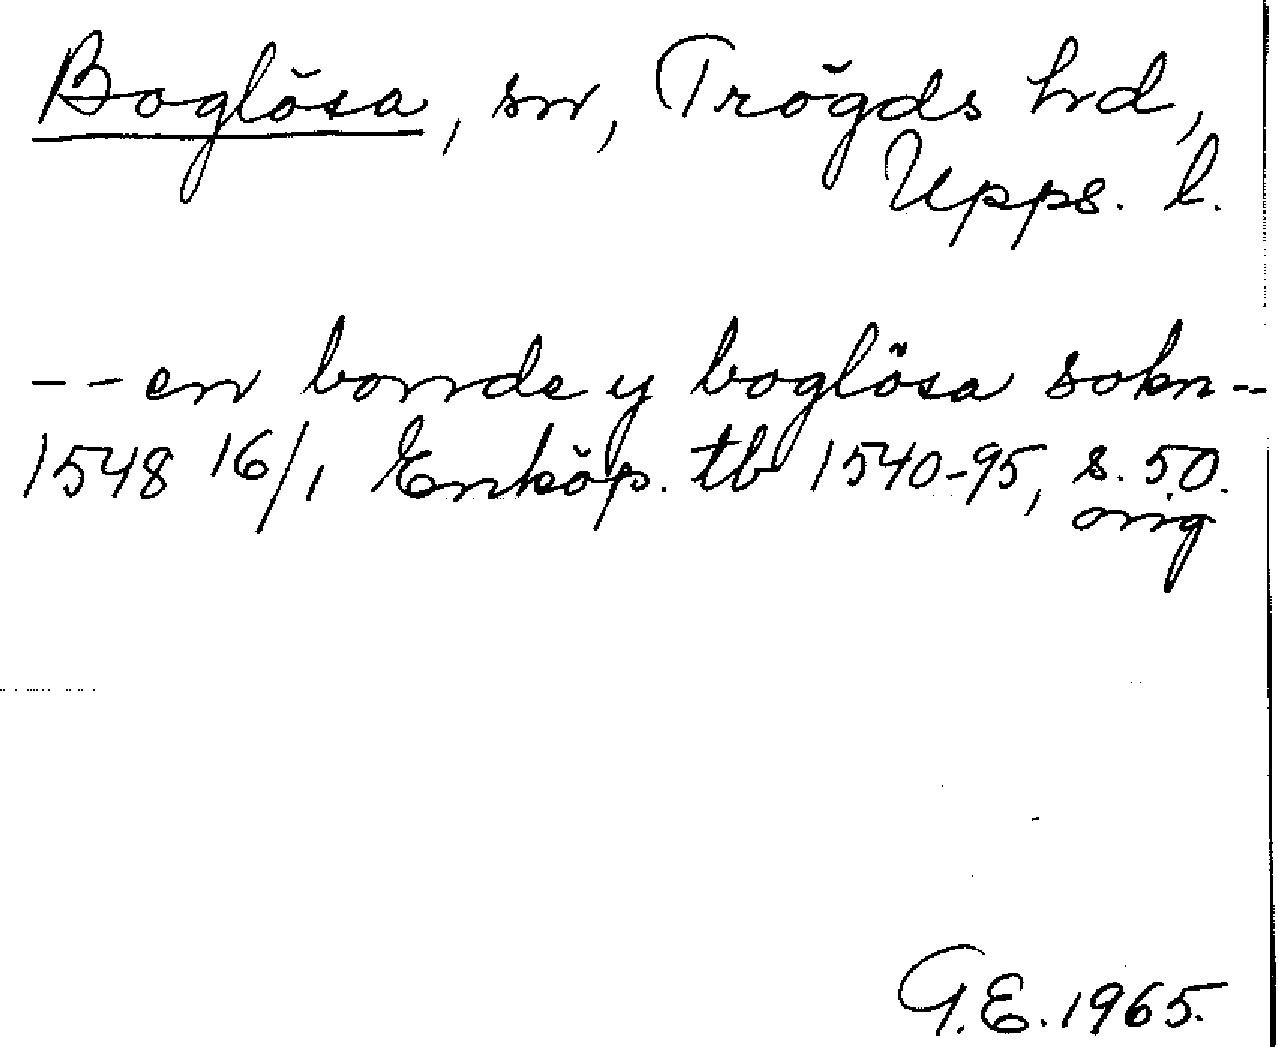 Boglösa, sn, Trögds hd,
Upps. l.
-- en bonde y boglösa sokn --
1548 16/1 Enköp. tb 1540-95, s. 50.
orig
G.E. 1965.